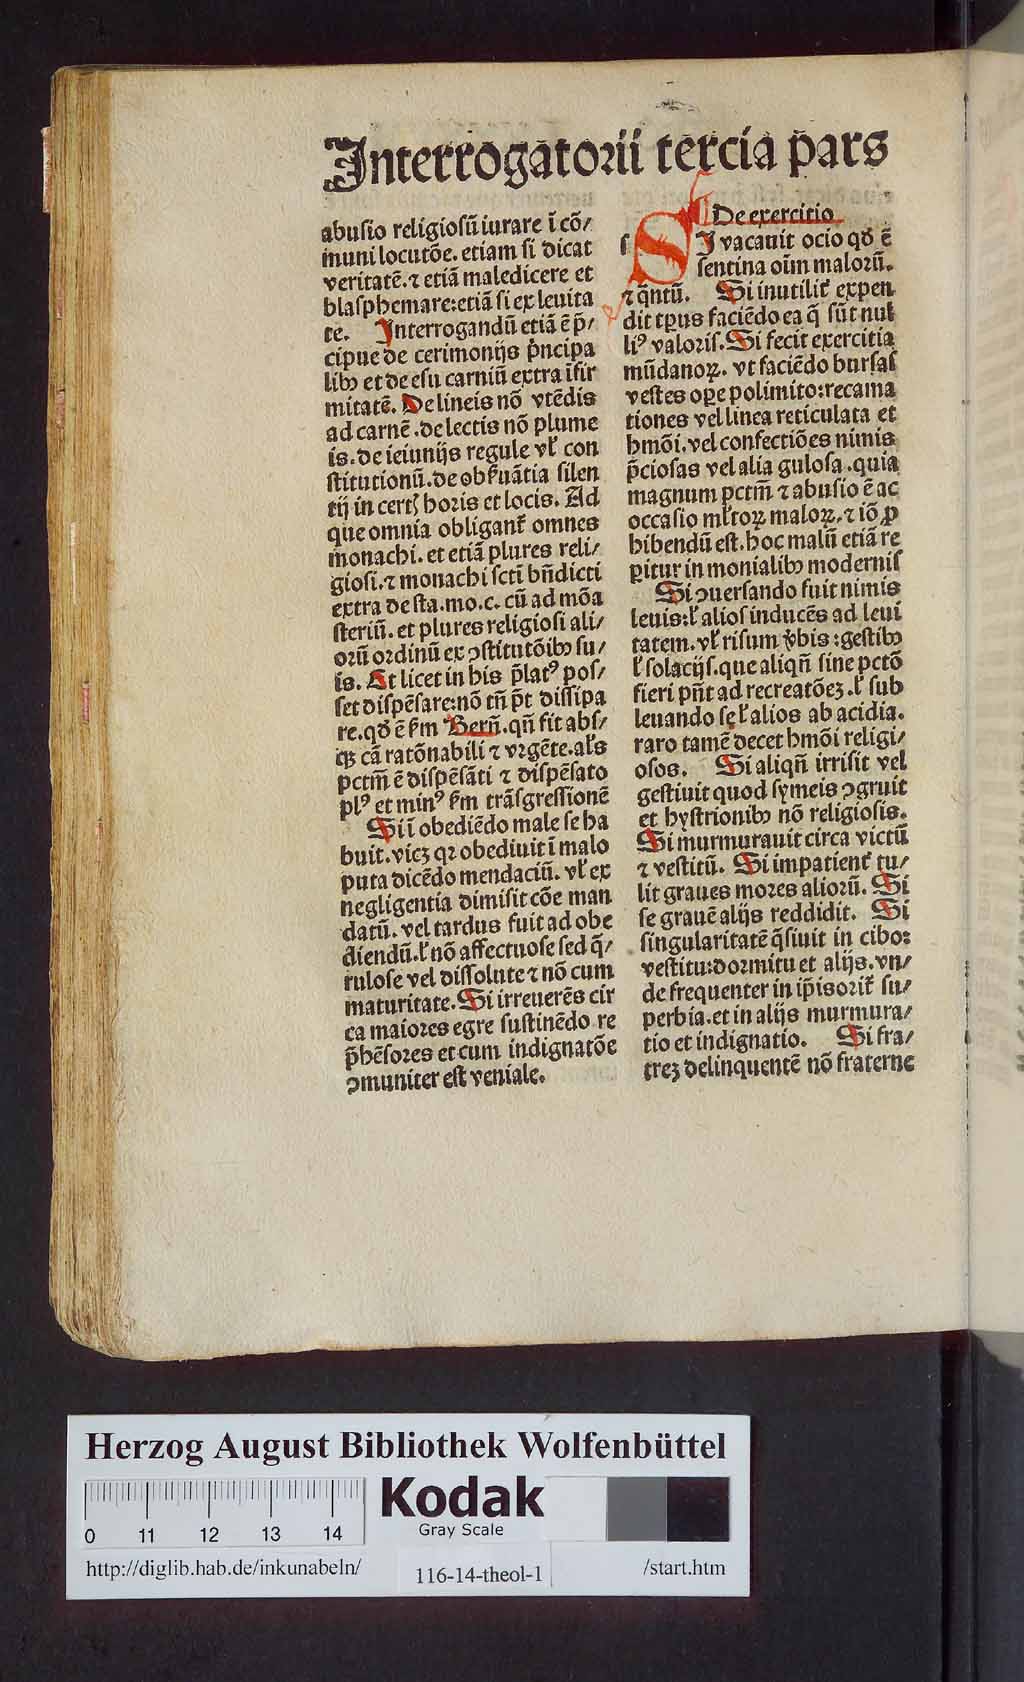 Interrogatorii tercia pars
abusio religiosū iurare ī cō/
muni locutōe. etiam si dicat
veritatē. ⁊ etiā maledicere et
blasphemare: etiā si ex leuita
te. Interrogandū etiā ē p̄/
cipue de cerimonijs p̄ncipa
libꝫ et de esu carniū extra īfir
mitatē. De lineis nō vtēdis
ad carnē. de lectis nō plume
is. de ieiunijs regule vł con
stitutionū. de obſuātia silen
tij in certꝭ horis et locis. Ad
que omnia obligant᷑ omnes
monachi. et etiā plures reli/
giosi. ⁊ monachi scti bn̄dicti
extra de sta. mo. c. cū ad mōa
steriū. et plures religiosi ali/
orū ordinū ex ꝯstitutōibꝫ su/
is. Et licet in his p̄latꝰ pos/
set dispēsare: nō tn̄ p̄t dissipa
re. qđ ē ſm Bern̄. qn̄ fit abs/
qꝫ cā ratōnabili ⁊ vrgēte. al's
pctm̄ ē dispēsāti ⁊ dispēsato
plꝰ et minꝰ ſm trāsgressionē
Si ī obediēdo male se ha
buit. vicꝫ qꝛ obediuit ī malo
puta dicēdo mendaciū. vł ex
negligentia dimisit cōe man
datū. vel tardus fuit ad obe
diendū. ł nō affectuose sed q̄/
rulose vel dissolute ⁊ nō cum
maturitate. Si irreuerēs cir
ca maiores egre sustinēdo re
p̄hēsores et cum indignatōe
ꝯmuniter est veniale.
De exercitio
s
SI vacauit ocio qđ ē
sentina oīm malorū.
⁊ q̄ntū. Si inutilit᷑ expen
dit tp̄us faciēdo ea q̄ sūt nul
liꝰ valoris. Si fecit exercitia
mūdanoꝝ. vt faciēdo bursas
vestes ope polimito: recama
tiones vel linea reticulata et
hmōi. vel confectiōes nimis
p̄ciosas vel alia gulosa. quia
magnum pctm̄ ⁊ abusio ē ac
occasio młtoꝝ maloꝝ. ⁊ iō ꝓ
hibendū est. hoc malū etiā re
ꝑitur in monialibꝫ modernis
Si ꝯuersando fuit nimis
leuis: ł alios inducēs ad leui
tatem. vł risum v̄bis: gestibꝫ
ł solacijs. que aliqn̄ sine pctō
fieri pn̄t ad recreatōeꝫ. ł sub
leuando se ł alios ab acidia.
raro tamē decet hmōi religi/
osos. Si aliqn̄ irrisit vel
gestiuit quod symeis ꝯgruit
et hystrionibꝫ nō religiosis.
Si murmurauit circa victū
⁊ vestitū. Si impatient᷑ tu/
lit graues mores aliorū. Si
se grauē alijs reddidit. Si
singularitatē q̄siuit in cibo:
vestitu: dormitu et alijs. vn/
de frequenter in ip̄is orit᷑ su/
perbia. et in alijs murmura/
tio et indignatio. Si fra/
treꝫ delinquentē nō fraterne
Herzog August Bibliothek Wolfenbüttel
0 11 12 13 14
Kodak
Gray Scale
http://diglib.hab.de/inkunabeln/
116-14-theol-1
/start.htm